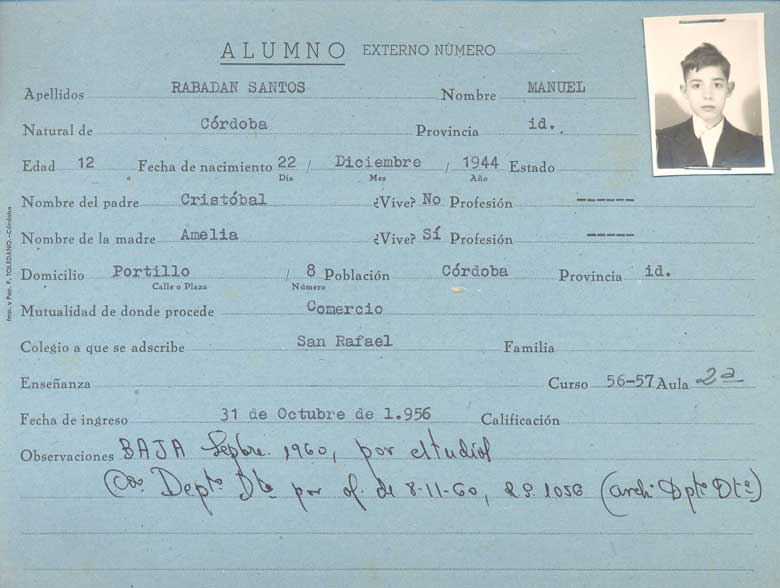 ALUMNO EXTERNO NÚMERO
Apellidos RABADAN SANTOS Nombre MANUEL
Natural de Córdoba Provincia id.
Edad 12 Fecha de nacimiento 22 / Diciembre / 1944 Estado
Día Mes Año
Nombre del padre Cristóbal ¿Vive? No Profesión ------
Nombre de la madre Amelia ¿Vive? Sí Profesión -----
Domicilio Portillo / 8 Población Córdoba Provincia id.
Calle o Plaza Número
Mutualidad de donde procede Comercio
Colegio a que se adscribe San Rafael Familia
Enseñanza Curso 56-57 Aula 2ª
Fecha de ingreso 31 de Octubre de 1.956 Calificación
Observaciones BAJA Sepbre. 1960, por estudios
Deptº Dtº por of. de 8-11-60, 1056 (arch. Dptº Dtº)
Imp. y Pap. F. TOLEDANO.-Córdoba